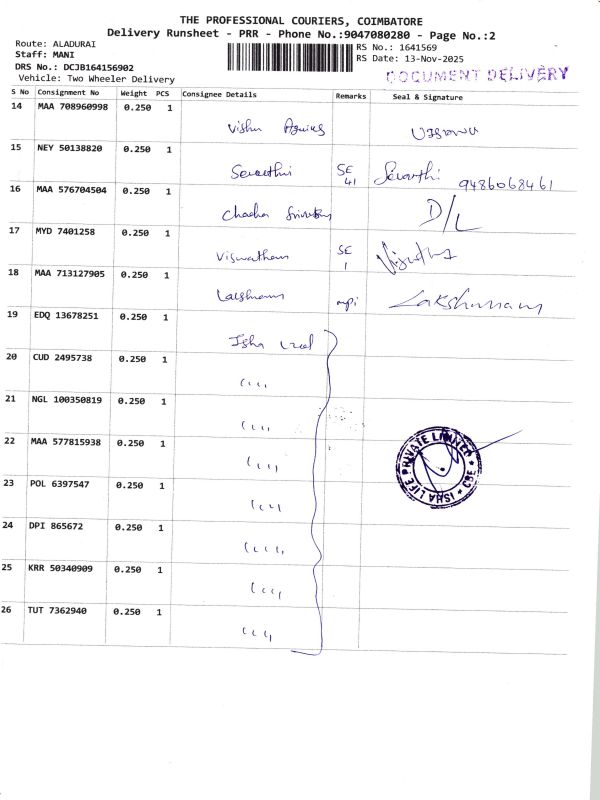 THE PROFESSIONAL COURIERS, COIMBATORE
Delivery Runsheet - PRR - Phone No.:9047080280 - Page No.:2
Route: ALADURAI
Staff: MANI
DRS No.: DCJB164156902
Vehicle: Two Wheeler Delivery
RS No.: 1641569
RS Date: 13-Nov-2025
DOCUMENT DELIVERY
S No Consignment No Weight PCS Consignee Details Remarks Seal & Signature
14 MAA 708960998 0.250 1
Vishnu
15 NEY 50138820 0.250 1
SE 41 9486068461
16 MAA 576704504 0.250 1
D/L
17 MYD 7401258 0.250 1
Viswatham SE 1
18 MAA 713127905 0.250 1
Lakshmanan
19 EDQ 13678251 0.250 1
Isha
20 CUD 2495738 0.250 1
21 NGL 100350819 0.250 1
22 MAA 577815938 0.250 1
23 POL 6397547 0.250 1
24 DPI 865672 0.250 1
25 KRR 50340909 0.250 1
26 TUT 7362940 0.250 1
ISHA LIFE PRIVATE LIMITED * CBE *